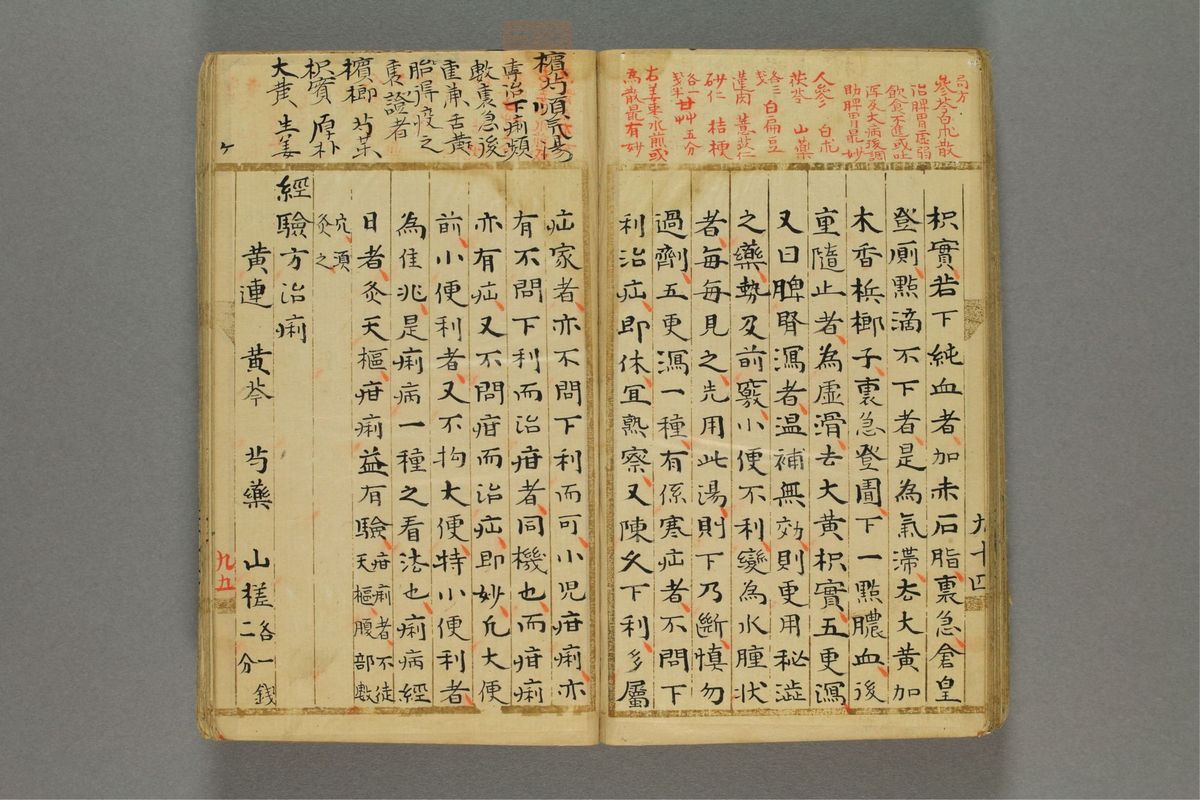 局方
參苓白朮散
治脾胃虛弱
飲食不進或吐
瀉及大病後調
助脾胃最妙
人參 白朮
茯苓 山藥
各三 白扁豆
蓮肉 薏苡仁
砂仁 桔梗
各一 甘艸五分
右姜棗水煎或
為散最有妙
九十四
枳實若下純血者加赤石脂裏急倉皇
登廁點滴不下者是為氣滯去大黃加
木香梹榔子裏急登圊下一點膿血後
重隨止者為虛滑去大黃枳實五更瀉
又曰脾腎瀉者温補無効則更用秘澁
之藥勢及前竅小便不利變為水腫状
者每每見之先用此湯則下乃斷慎勿
過劑五更瀉一種有係寒疝者不問下
利治疝即休冝熟察又陳久下利多屬
檳芍順氣湯
專治下痢頻
數裏急後
重兼舌黃
胎得疫之
裏證者
檳榔 芍藥
枳實 厚朴
大黃 生姜
疝家者亦不問下利而可小児疳痢亦
有不問下利而治疳者同機也而疳痢
亦有疝又不問疳而治疝即妙凢大便
前小便利者又不拘大便特小便利者
為佳兆是痢病一種之看法也痢病經
日者灸天樞疳痢益有驗疳痢者不徒
天樞腹部數
穴須
灸之
經驗方治痢
黃連 黃芩 芍藥 山楂各一錢
二分
九五